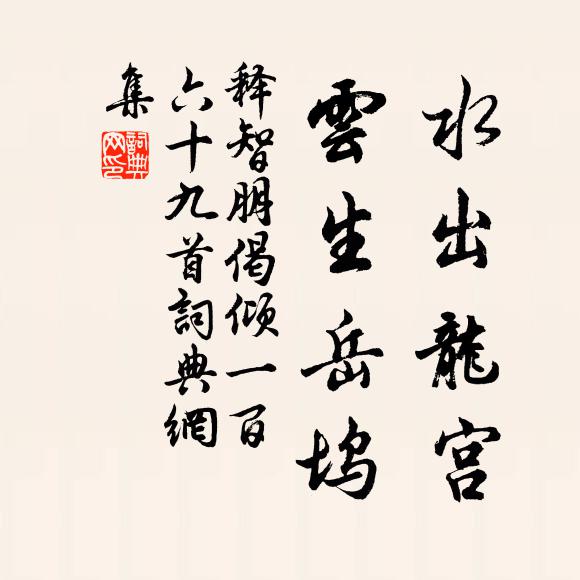 水出龍宮
雲生岳坞
释智朋偈倾一百
六十九首詞典網
集
詞典
网印